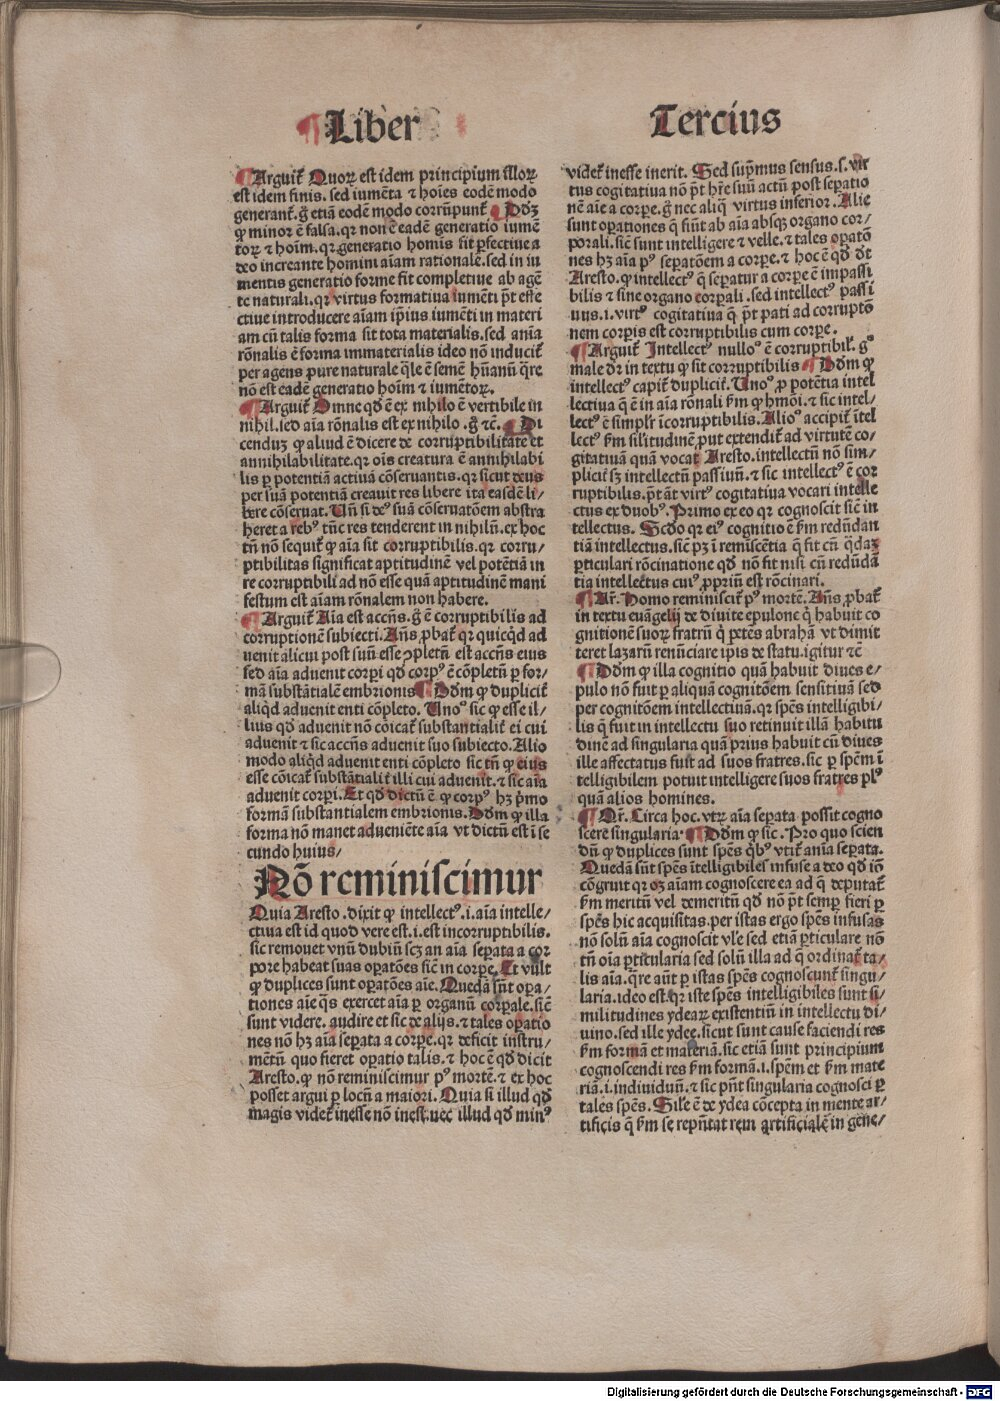 ¶ Liber
Tercius
¶ Arguit̄ Quoꝝ est idem principium illoꝝ
est idem finis. sed iumēta ⁊ hoīes eodē modo
generant̄. g̊ etiā eodē modo corrūpunt̄ ¶ Dd̄ꝫ
ꝙ minor ē falsa. qꝛ non ē eadē generatio iumē
toꝝ ⁊ hoīm. qꝛ generatio homīs fit ꝑfectiue a
deo increante homini aīam rationalē. sed in iu
mentis generatio forme fit completiue ab agē
te naturali. qꝛ virtus formatiua iumēti p̄t effe
ctiue introducere aīam ip̄ius iumēti in materi
am cū talis forma sit tota materialis. sed anīa
rōnalis ē forma immaterialis ideo nō inducit̄
per agens pure naturale q̄le ē semē hūanū q̄re
nō est eadē generatio hoīm ⁊ iumētoꝝ.
¶ Arguit̄ Omne qd̄ ē ex nihilo ē vertibile in
nihil. sed aīa rōnalis est ex nihilo. g̊ ⁊c̄. ¶ Di
cenduꝫ ꝙ aliud ē dicere de corruptibilitate et
annihilabilitate. qꝛ oīs creatura ē annihilabi
lis ꝑ potentiā actiuā cōseruantis. qꝛ sicut deus
per suā potentiā creauit res libere ita easdē li/
bere cōseruat. Vn̄ si deꝰ suā cōseruatōem abstra
heret a rebꝰ tūc res tenderent in nihilū. ex hoc
tn̄ nō sequit̄ ꝙ aīa sit corruptibilis. qꝛ corru/
ptibilitas significat aptitudinē vel potētiā in
re corruptibili ad nō esse quā aptitudinē mani
festum est aīam rōnalem non habere.
¶ Arguit̄ Aīa est accn̄s. g̊ ē corruptibilis ad
corruptionē subiecti. An̄s ꝓbat̄ qꝛ quicq̄d ad
uenit alicui post suū esse ꝯpletū est accn̄s eius
sed aīa aduenit corpi qd̄ corpꝰ ē cōpletū ꝑ for-
mā substātialē embrionis ¶ Dd̄m ꝙ duplicit̄
aliq̄d aduenit enti cōpleto. Unoº sic ꝙ esse il/
lius qd̄ aduenit nō cōicat̄ substantialit̄ ei cui
aduenit ⁊ sic accn̄s aduenit suo subiecto. Alio
modo aliq̄d aduenit enti cōpleto sic tn̄ ꝙ eius
esse cōicat̄ substātialit̄ illi cui aduenit. ⁊ sic aīa
aduenit corpi. Et qd̄ dictū ē ꝙ corpꝰ hꝫ p̄mo
formā substantialem embrionis. Dd̄m ꝙ illa
forma nō manet adueniēte aīa vt dictū est ī se
cundo huius/
Nō reminiscimur
Quia Aresto. dixit ꝙ intellectꝰ. i. aīa intelle/
ctiua est id quod vere est. i. est incorruptibilis.
sic remouet vnū dubiū scꝫ an aīa sepata a cor
pore habeat suas opatōes sic̄ in corpe. Et vult
ꝙ duplices sunt opatōes aīe. Quedā sūt opa/
tiones aīe q̄s exercet aīa ꝑ organū corpale. sic̄
sunt videre. audire et sic de alijs. ⁊ tales opatio
nes nō hꝫ aīa sepata a corpe. qꝛ deficit instru/
mētū quo fieret opatio talis. ⁊ hoc ē qd̄ dicit
Aresto. ꝙ nō reminiscimur pꝰ mortē. ⁊ ex hoc
posset argui ꝑ locū a maiori. Quia si illud qd̄
magis videt̄ inesse nō inest. nec illud qd̄ minꝰ
videt̄ inesse inerit. Sed sup̄mus sensus. s. vir
tus cogitatiua nō p̄t hr̄e suū actū post sepatio
nē aīe a corpe. g̊ nec aliq̄ virtus inferior. Alie
sunt opationes q̄ fiūt ab aīa absqꝫ organo cor/
porali. sic̄ sunt intelligere ⁊ velle. ⁊ tales opatō
nes hꝫ aīa pꝰ sepatōem a corpe. ⁊ hoc ē qd̄ dt̄
Aresto. ꝙ intellectꝰ q̄ sepatur a corpe ē impassi
bilis ⁊ sine organo corpali. sed intellectꝰ passi
uus. i. virtꝰ cogitatiua q̄ p̄t pati ad corruptō
nem corpis est corruptibilis cum corpe.
¶ Arguit̄ Intellectꝰ nulloº ē corruptibil̄. gº
male dr̄ in textu ꝙ sit corruptibilis ¶ Dd̄m ꝙ
intellectꝰ capit̄ duplicit̄. Unoº ꝓ potētia intel
lectiua q̄ ē in aīa rōnali km̄ ꝙ hmōi. ⁊ sic intel/
lectꝰ ē simplr̄ īcorruptibilis. Alioº accipit̄ ītel
lectꝰ km̄ sil̄itudinē put extendit̄ ad virtutē co/
gitatiuā quā vocat Aresto. intellectū nō sim/
plicit̄ sꝫ intellectū passiuū. ⁊ sic intellectꝰ ē cor
ruptibilis. p̄t āt virtꝰ cogitatiua vocari intelle
ctus ex duobꝰ. Primo ex eo qꝛ cognoscit sic̄ in
tellectus. Scd̄o qꝛ eiꝰ cognitio ē km̄ redūdan
tiā intellectus. sic̄ pꝫ ī remiscētia q̄ fit cū q̄daꝫ
ꝑticulari rōcinatione qd̄ nō fit nisi cū redūdā
tia intellectus cuiꝰ ꝓpriū est rōcinari.
¶ Ar̄. Homo reminiscit̄ pꝰ mortē. An̄s ꝓbat̄
in textu euāgelij de diuite epulone q̄ habuit co
gnitionē suoꝝ fratrū q̄ petēs abrahā vt dimit
teret lazarū renūciare ip̄is de statu. igitur ⁊c̄
¶ Dd̄m ꝙ illa cognitio quā habuit diues e/
pulo nō fuit ꝑ aliquā cognitōem sensitiuā sed
per cognitōem intellectiuā. qꝛ sp̄es intelligibi/
lis q̄ fuit in intellectu suo retinuit illā habitu
dinē ad singularia quā prius habuit cū diues
ille affectatus fuit ad suos fratres. sic ꝑ sp̄em ī
telligibilem potuit intelligere suos fratres plꝰ
quā alios homines.
¶ Qr̄. Circa hoc. vtꝝ aīa sepata possit cogno
scere singularia. ¶ Dd̄m ꝙ sic. Pro quo scien
dū ꝙ duplices sunt sp̄es q̄bꝰ vtit̄ anīa sepata.
Quedā sūt sp̄es ītelligibiles infuse a deo qd̄ iō
cōgruit qꝛ oꝫ aīam cognoscere ea ad q̄ deputat̄
km̄ meritū vel demeritū qd̄ nō p̄t semp fieri ꝑ
sp̄es hic acquisitas. per istas ergo sp̄es infusas
nō solū aīa cognoscit vl̄e sed etiā ꝑticulare nō
tn̄ oīa ꝑticularia sed solū illa ad q̄ ordinat̄ ta/
lis aīa. q̄re aūt ꝑ istas sp̄es cognoscunt̄ singu/
laria. ideo est. qꝛ iste sp̄es intelligibiles sunt si/
militudines ydeaꝝ existentiū in intellectu di/
uino. sed ille ydee. sicut sunt cause faciendi res
km̄ formā et materiā. sic etiā sunt principium
cognoscendi res km̄ formā. i. sp̄em et km̄ mate
riā. i. indiuiduū. ⁊ sic pn̄t singularia cognosci ꝑ
tales sp̄es. Sil̄e ē de ydea cōcepta in mente ar/
tificis q̄ km̄ se repn̄tat rem artificialē in gene/
Digitalisierung gefördert durch die Deutsche Forschungsgemeinschaft - DFG